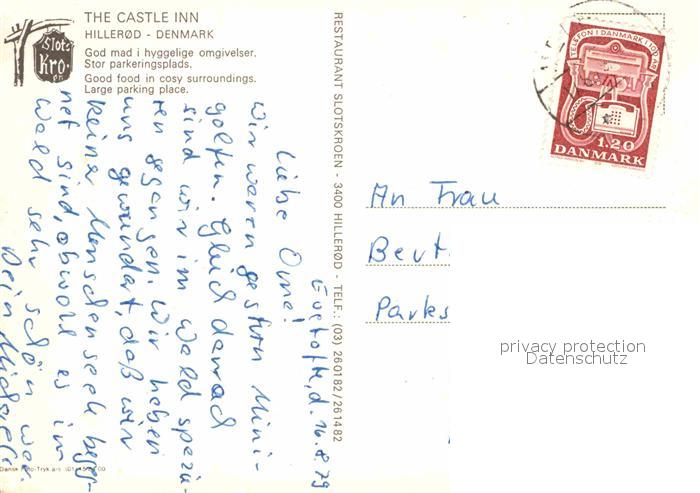 THE CASTLE INN
HILLERØD - DENMARK
God mad i hyggelige omgivelser.
Stor parkeringsplads.
Good food in cosy surroundings.
Large parking place.
Slots
Kro
RESTAURANT SLOTSKROEN - 3400 HILLERØD - TELF.: (03) 260182/261482
TELEFON I DANMARK I 100 ÅR
1.20
DANMARK
d. 16.8.79
Liebe Omi!
Wir waren gestern Mini-
golfen. Gleich danach
sind wir im Wald spazie-
ren gegangen. Wir haben
uns gewundert, daß wir
keiner Menschenseele begeg-
net sind, obwohl es im
Wald sehr schön war.
An Frau
Bert
Parks
privacy protection
Datenschutz